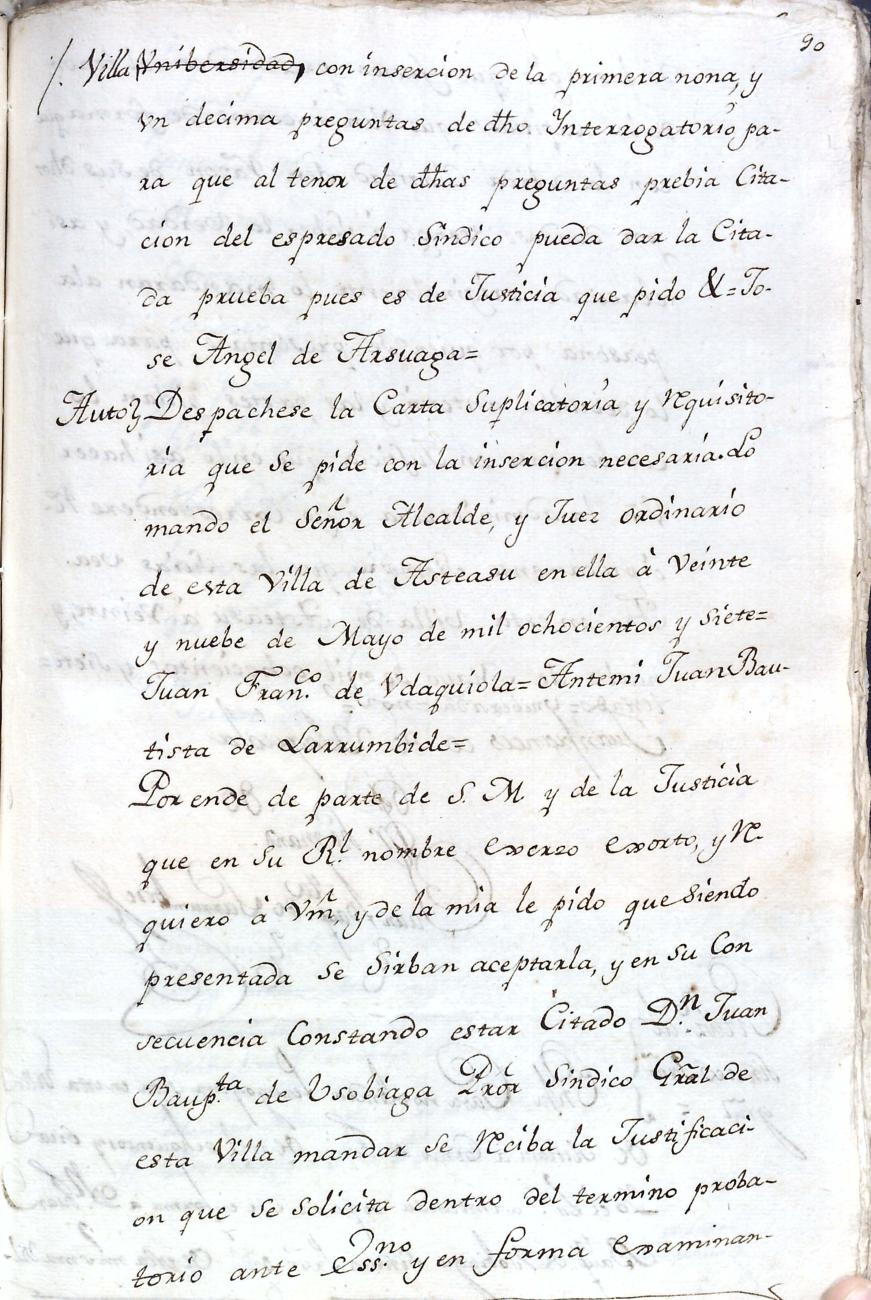 90
/. Villa Vnibersidad, con insercion de la primera nona, y
vn decima preguntas de dho. Interrogatorio pa-
ra que al tenor de dhas preguntas prebia Cita-
cion del espresado Sindico pueda dar la Cita-
da prueba pues es de Justicia que pido &=Jo-
se Angel de Arsuaga=
Auto} Despachese la Carta Suplicatoria y requisito-
ria que se pide con la insercion necesaria. Lo
mando el Señor Alcalde, y Juez ordinario
de esta Villa de Asteasu en ella à Veinte
y nuebe de Mayo de mil ochocientos y siete=
Juan Fran.co de Vdaquiola=Antemi Juan Bau-
tista de Larrumbide=
Por ende de parte de S. M y de la Justicia
que en su Rl. nombre exerzo exorto, y re-
quiero à Vm, y de la mia le pido que siendo
presentada se sirban aceptarla, y en su Con
secuencia Constando estar Citado D.n Juan
Baup.ta de Usobiaga Pror Sindico Gral de
esta Villa mandar se reciba la Justificaci-
on que se solicita dentro del termino proba-
torio ante Ess.no y en forma examinan-